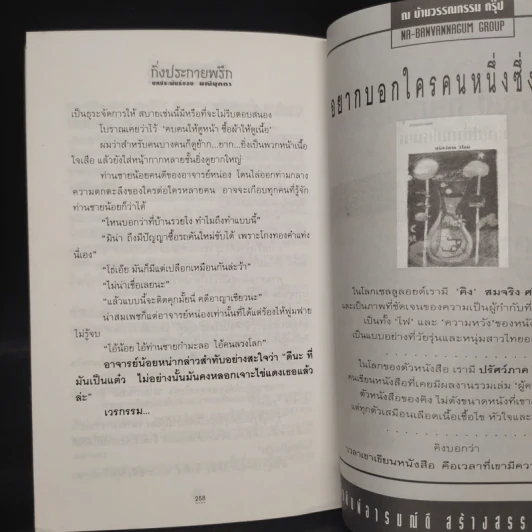 กิ่งประกายพรึก
เป็นธุระจัดการให้ สบายเช่นนี้มีหรือที่จะไม่รีบตอบสนอง
โบราณเคยว่าไว้ 'คบคนให้ดูหน้า ซื้อผ้าให้ดูเนื้อ'
ผมว่าสำหรับคนบางคนก็ดูย้าก...ยาก...ยิ่งเป็นพวกหน้าเนื้อ
ใจเสือ แล้วยังใส่หน้ากากหลายชั้นยิ่งดูยากใหญ่
ท่านชายน้อยคนดีของอาจารย์หน่อง โดนไล่ออกท่ามกลาง
ความตกตะลึงของใครต่อใครหลายคน อาจจะเกือบทุกคนที่รู้จัก
ท่านชายน้อยก็ว่าได้
"ไหนบอกว่าที่บ้านรวยไง ทำไมถึงทำแบบนี้"
"มิน่า ถึงมีปัญญาซื้อรถคันใหม่ขับได้ เพราะโกงทองคำแท่ง
นี่เอง"
"โธ่เอ๊ย มันก็มีแต่เปลือกเหมือนกันล่ะว้า"
"ไม่น่าเชื่อเลยนะ"
"แล้วแบบนี้จะติดคุกมั้ยนี่ คดีอาญาเชียวนะ"
น่าสมเพชก็แต่อาจารย์หน่องเท่านั้นที่ได้แต่ร้องไห้ฟูมฟาย
ไม่รู้จบ
"ไอ้น้อย ไอ้ท่านชายกำมะลอ ไอ้คนลวงโลก"
อาจารย์น้อยหน่ากล่าวสำทับอย่างสะใจว่า "ดีนะ ที่
มันเป็นแต๋ว ไม่อย่างนั้นมันคงหลอกเจาะไข่แดงเธอแล้ว
ล่ะ"
เวรกรรม...
258
ณ บ้านวรรณกรรม กรุ๊ป
NA-BANVANNAGUM GROUP
อยากบอกใครคนหนึ่งซึ่ง
ในโลกเซลลูลอยด์เรามี 'คิง' สมจริง ศ
และเป็นภาพที่ชัดเจนของความเป็นผู้กำกับที่
เป็นทั้ง 'ไฟ' และ 'ความหวัง' ของหนัง
เป็นแบบอย่างที่วัยรุ่นและหนุ่มสาวไทยอ
ในโลกของตัวหนังสือ เรามี ปรัศว์ภาค
คนเขียนหนังสือที่เคยมีผลงานรวมเล่ม 'ผู้ค
ตัวหนังสือของคิง ไม่ดังขนาดหนังที่เขา
แต่ทุกตัวเสมือนเลือดเนื้อเชื้อไข หัวใจและ
คิงบอกว่า
เวลาเขาเขียนหนังสือ คือเวลาที่เขามีควา
สร้างสรร